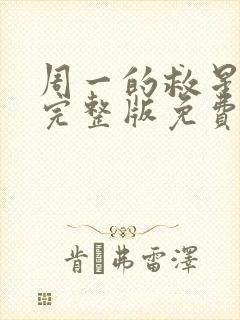 周一的救星
完整版免費
肯·弗雷澤